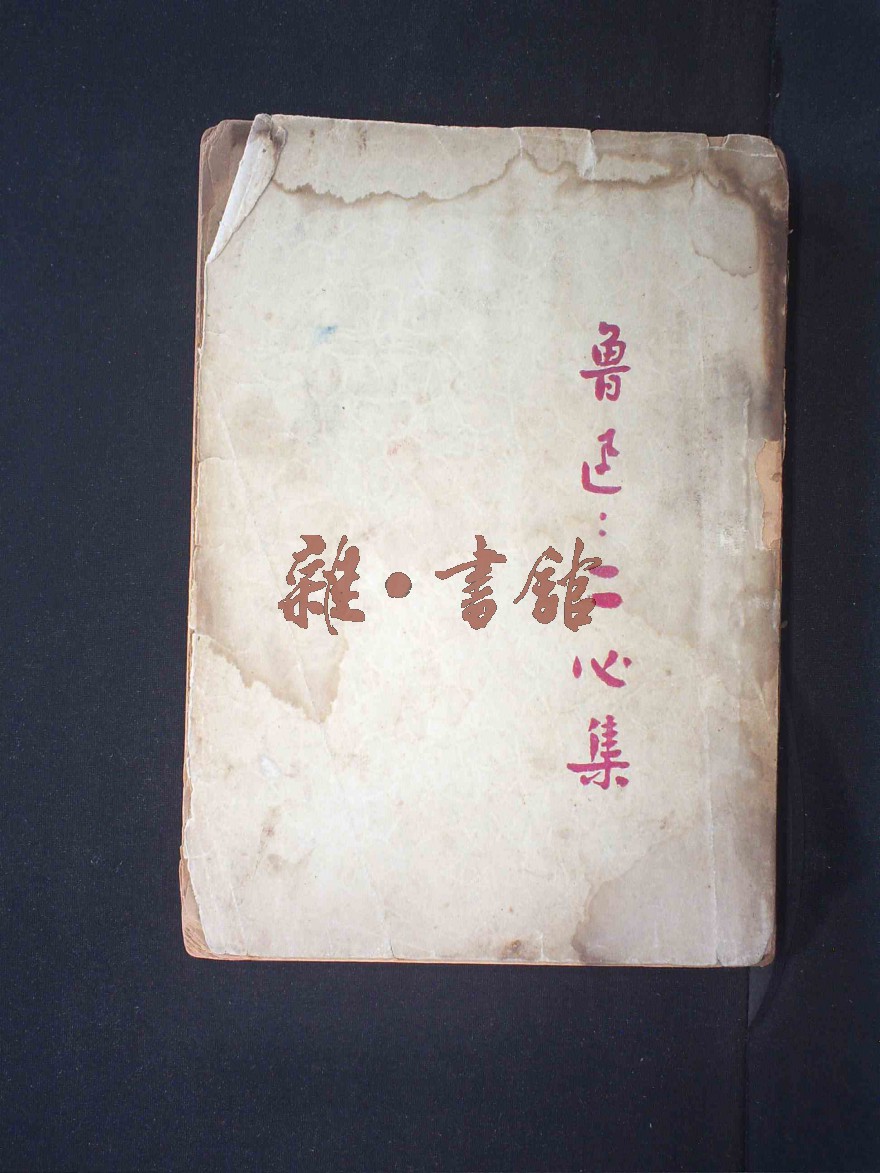 魯迅:二心集
雜·書館